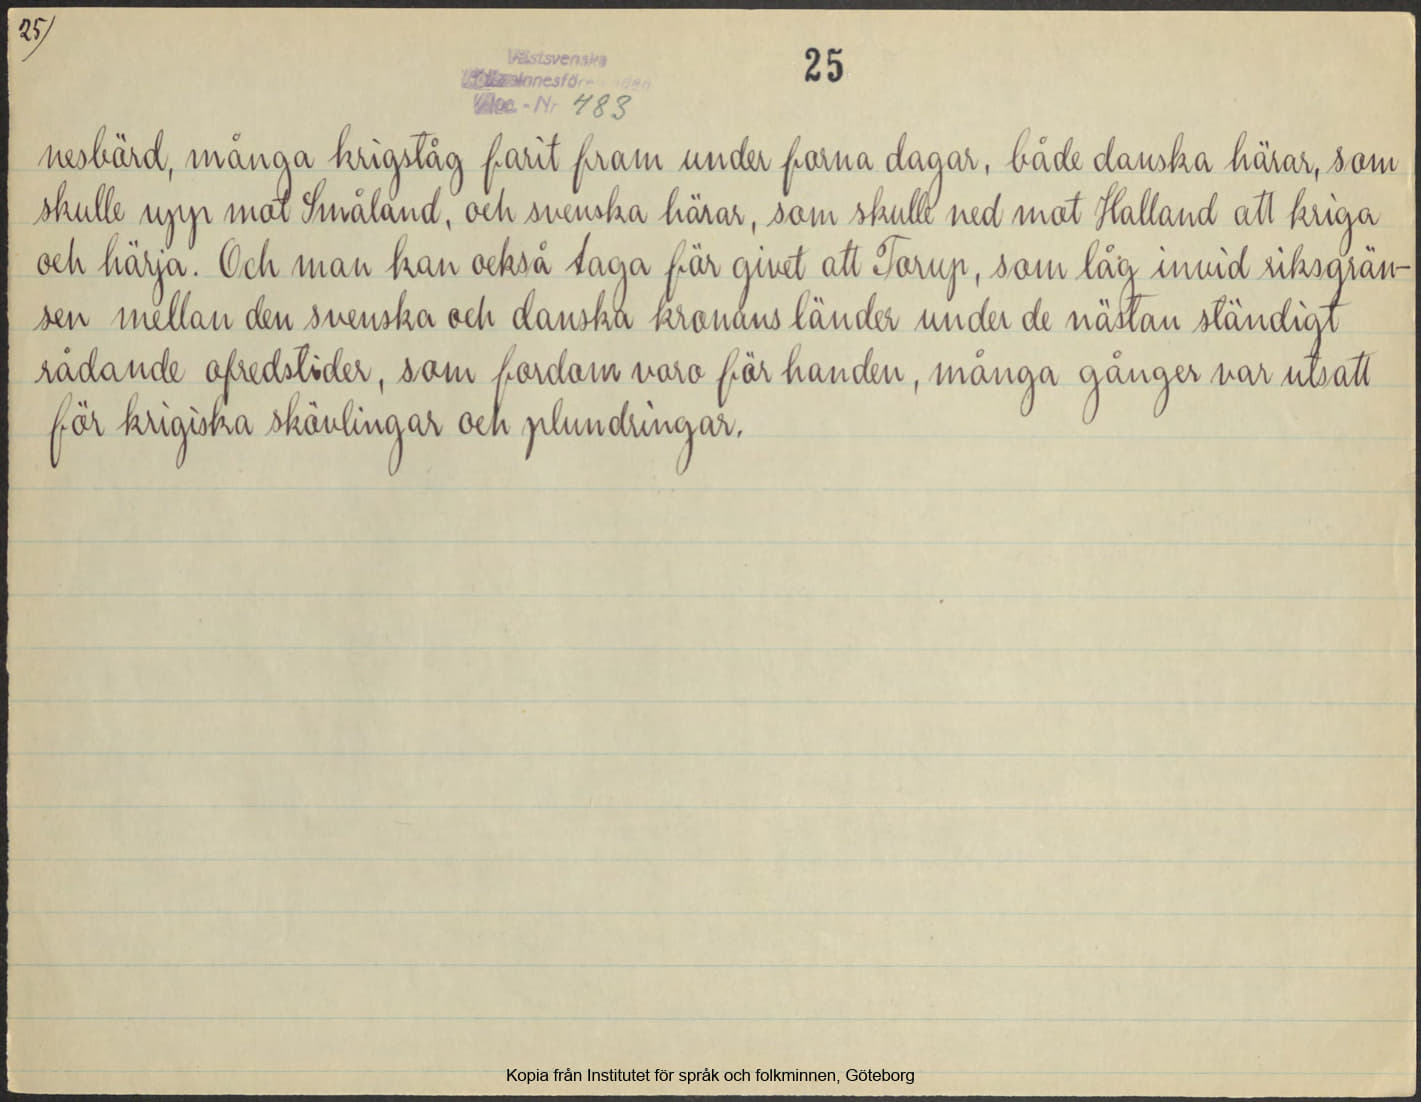 25)
25
Västsvenska
Acc. - Nr 483
nesbörd, många krigståg farit fram under forna dagar, både danska härar, som
skulle upp mot Småland, och svenska härar, som skulle ned mot Halland att kriga
och härja. Och man kan också taga för givet att Torup, som låg invid riksgrän-
sen mellan den svenska och danska kronans länder under de nästan ständigt
rådande ofredstider, som fordom voro för handen, många gånger var utsatt
för krigiska skövlingar och plundringar.
Kopia från Institutet för språk och folkminnen, Göteborg